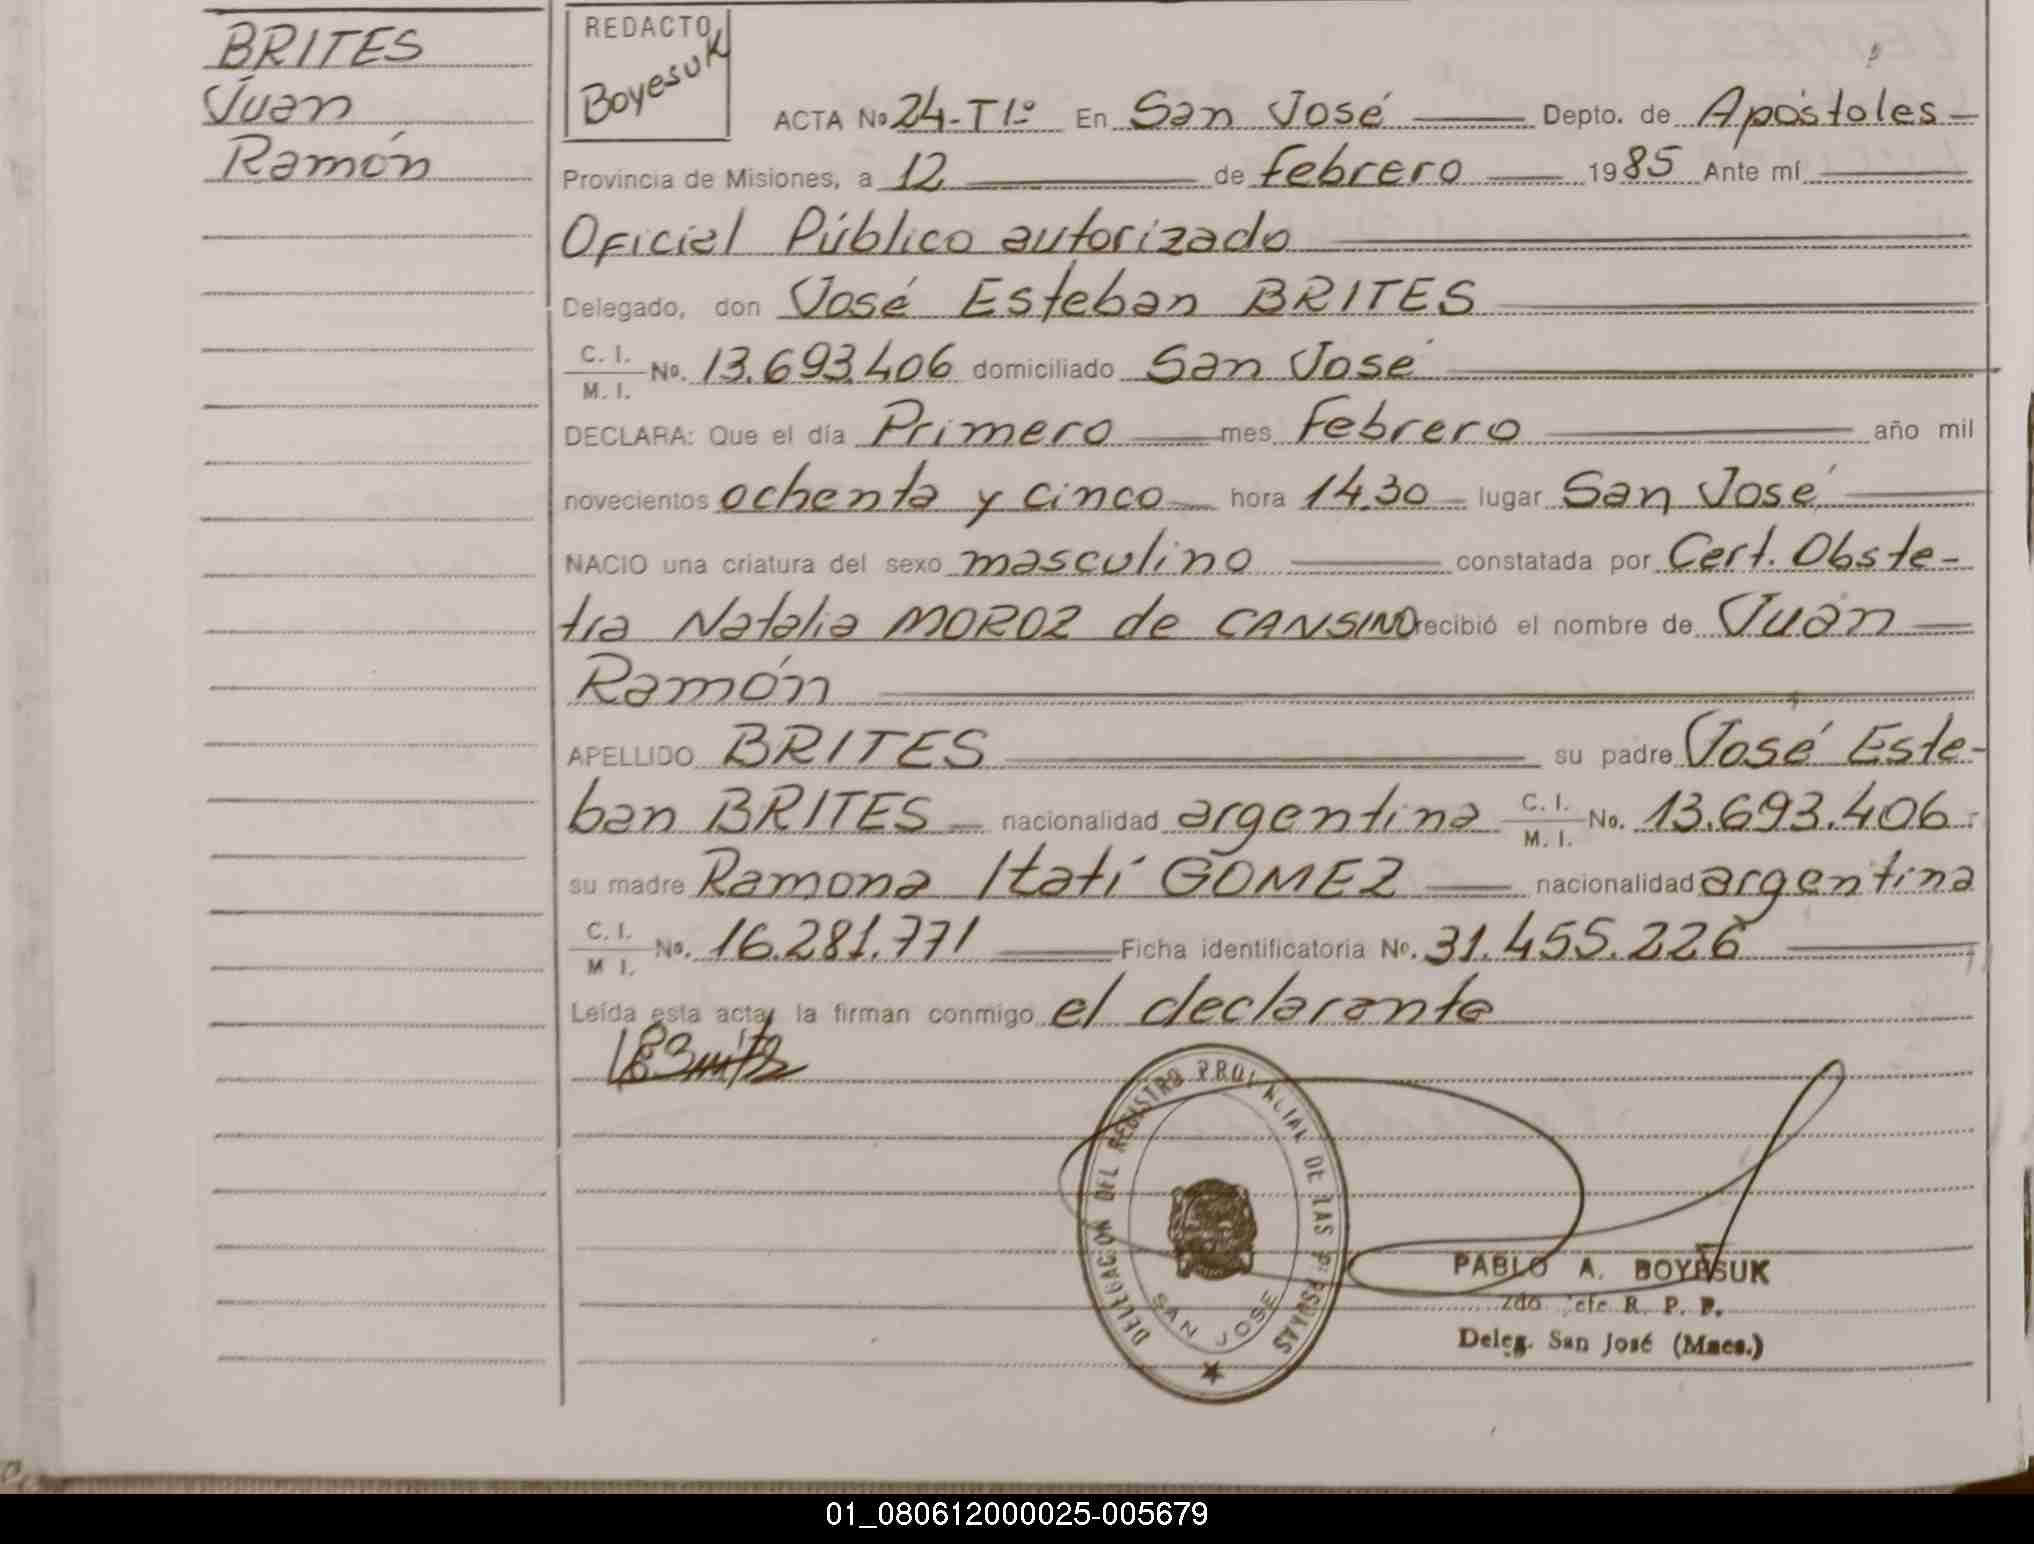 BRITES
Juan
Ramón
REDACTO
Boyesuk
ACTA Nº 24-T1º En San José Depto. de Apóstoles
Provincia de Misiones, a 12 de febrero 1985 Ante mí
Oficial Público autorizado
Delegado, don José Esteban BRITES
C. I. / M. I. Nº. 13.693.406 domiciliado San José
DECLARA: Que el día Primero mes Febrero año mil
novecientos ochenta y cinco hora 14.30 lugar San José
NACIO una criatura del sexo masculino constatada por Cert. Obste-
tra Natalia MOROZ de CANSINO recibió el nombre de Juan
Ramón
APELLIDO BRITES su padre José Este-
ban BRITES nacionalidad argentina C. I. / M. I. No. 13.693.406.
su madre Ramona Itatí GOMEZ nacionalidad argentina
C. I. / M I. No. 16.281.771 Ficha identificatoria Nº. 31.455.226
Leída esta acta, la firman conmigo el declarante
DELEGACION DEL REGISTRO PROVINCIAL DE LAS PERSONAS
SAN JOSE
PABLO A. BOYESUK
2do Jefe R. P. P.
Deleg. San José (Mnes.)
01_080612000025-005679